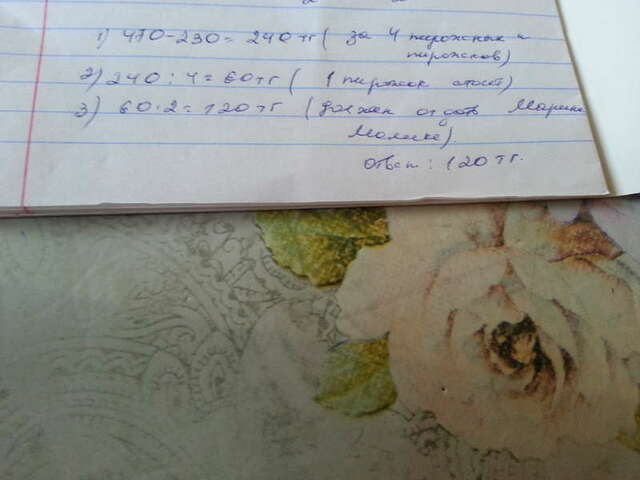 1) 470-230= 240 тг ( за 4 пирожных и
пирожков)
2) 240 : 4 = 60 тг ( 1 пирожок стоит)
3) 60·2=120 тг (должен отдать Марине
Молике).
Ответ: 120 тг.